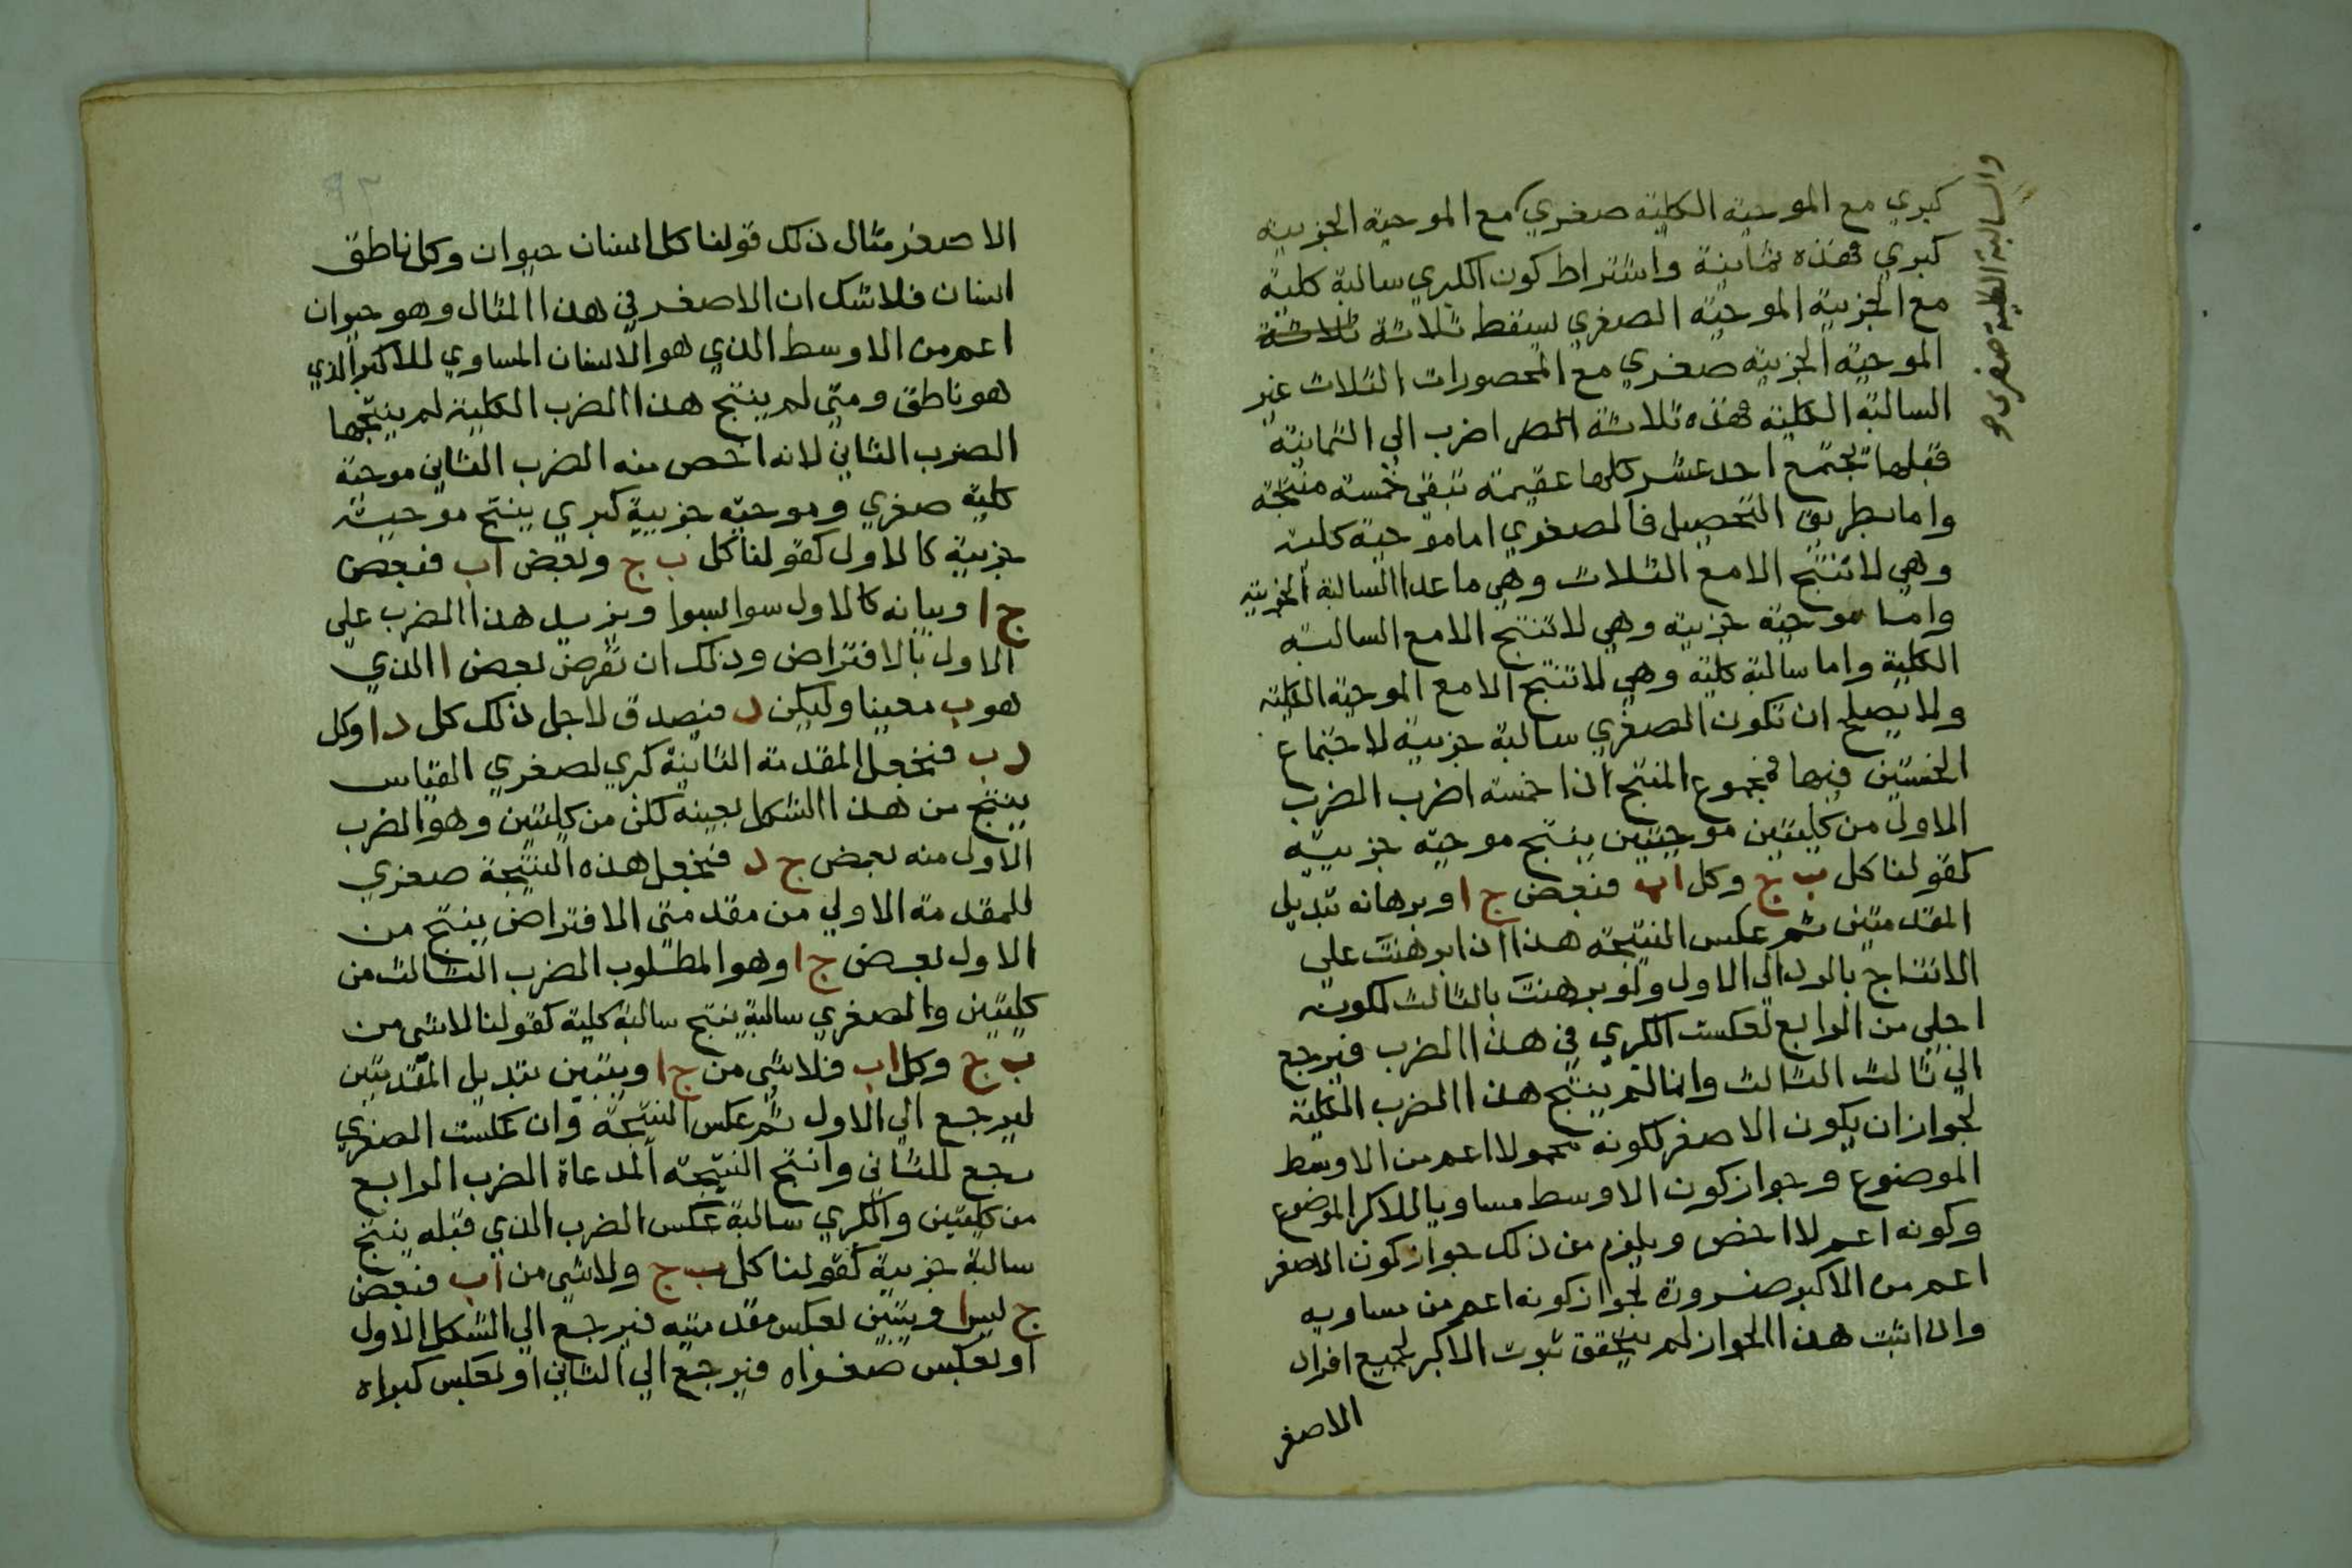 كبري مع الموجبة الكلية صغري مع الموجبة الجزيية
والسالبة الكلية صغرى
كبري فهذه ثمانية واشتراط كون الكبري سالبة كلية
مع الجزيية الموجبة الصغري يسقط ثلاثة ثلاثة
الموجبة الجزيية صغري مع المحصورات الثلاث غير
السالبة الكلية فهذه ثلاثة اضرب الي الثمانية
قبلها تجتمع احد عشر كلها عقيمة تبقي خمسة منتجة
واما بطريق التحصيل فالصغري اما موجبة كلية
وهي لا تنتج الا مع الثلاث وهي ما عدا السالبة الجزيية
واما موجبة جزيية وهي لا تنتج الا مع السالبة
الكلية واما سالبة كلية وهي لا تنتج الا مع الموجبة الكلية
ولا يصلح ان تكون الصغري سالبة جزيية لاجتماع
الخستين فيها فمجموع المنتج اذا خمسة اضرب الضرب
الاول من كليتين موجبتين ينتج موجبة جزيية
كقولنا كل ب ج وكل اب فبعض ج ا وبرهانه تبديل
المقدمتين ثم عكس النتيجة هذا اذا برهنت على
الانتاج بالرد الي الاول ولو برهنت بالثالث لكونه
اجلي من الرابع لعكست الكبري في هذا الضرب فيرجع
الي ثالث الثالث وانما لم ينتج هذا الضرب الكلية
لجواز ان يكون الاصغر لكونه محمولا اعم من الاوسط
الموضوع وجواز كون الاوسط مساويا للاكبر الموضوع
وكونه اعم لا اخص ويلزم من ذلك جواز كون الاصغر
اعم من الاكبر ضرورة لجواز كونه اعم من مساويه
واذا ثبت هذا الجواز لم يتحقق ثبوت الاكبر لجميع افراد
الاصغر
الاصغر مثال ذلك قولنا كل انسان حيوان وكل ناطق
انسان فلا شك ان الاصغر في هذا المثال وهو حيوان
اعم من الاوسط الذي هو الانسان المساوي للاكبر الذي
هو ناطق ومتي لم ينتج هذا الضرب الكلية لم ينتجها
الضرب الثاني لانه اخص منه الضرب الثاني موجبة
كلية صغري وموجبة جزيية كبري ينتج موجبة
جزيية كالاول كقولنا كل ب ج وبعض اب فبعض
ج ا وبيانه كالاول سوا بسوا ويزيد هذا الضرب على
الاول بالافتراض وذلك ان تفرض بعض ا الذي
هو ب معينا وليكن د فيصدق لاجل ذلك كل د ا وكل
د ب فنجعل المقدمة الثانية كبري لصغري القياس
ينتج من هذا الشكل بعينه لكن من كليتين وهو الضرب
الاول منه بعض ج د فنجعل هذه النتيجة صغري
للمقدمة الاولي من مقدمتى الافتراض ينتج من
الاول بعض ج ا وهو المطلوب الضرب الثالث من
كليتين والصغري سالبة ينتج سالبة كلية كقولنا لا شى من
ب ج وكل اب فلا شي من ج ا ويتبين بتبديل المقدمتين
ليرجع الي الاول ثم عكس النتيجة وان عكست الصغري
رجع للثاني وانتج النتيجة المدعاة الضرب الرابع
من كليتين والكبري سالبة عكس الضرب الذي قبله ينتج
سالبة جزيية كقولنا كل ب ج ولا شى من اب فبعض
ج ليس ا ويتبين بعكس مقدمتيه فيرجع الي الشكل الاول
او بعكس صغراه فيرجع الي الثاني او بعكس كبراه